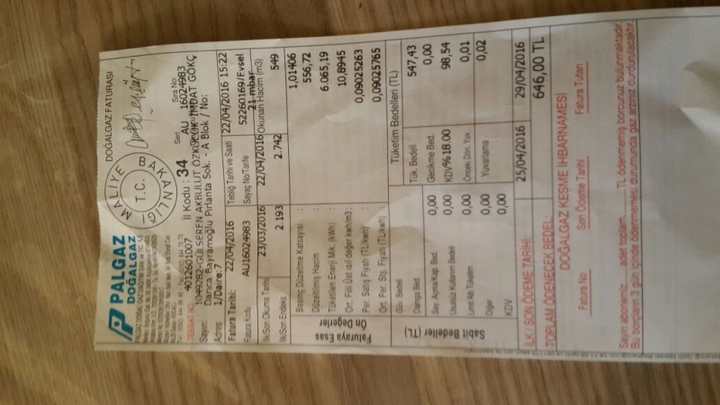 PALGAZ
DOĞALGAZ
DOĞALGAZ FATURASI
MALİYE BAKANLIĞI
T.C.
Seri
Sıra No
4012601007 İl Kodu : 34 AU 16024983
Sayın:
Adres
Darıca Bayramoğlu Pırlanta Sok. - A Blok / No:
1/Daire:7
Fatura Tarihi: 22/04/2016 Tebliğ Tarihi ve Saati 22/04/2016 15:22
Fatura Kodu AU16024983 Sayaç No/Tarife 52260169/Evsel
21 mbar
İlk/Son Okuma Tarihi 23/03/2016 22/04/2016 Okunan Hacim (m3)
İlk/Son Endeks 2.193 2.742 549
Faturaya Esas
Ön Değerler
Basınç Düzeltme Katsayısı : 1,01406
Düzeltilmiş Hacim : 556,72
Tüketilen Enerji Mik. (kWh) : 6.065,19
Ort. Fiili Üst ısıl değer kwh/m3: 10,8945
Per. Satış Fiyatı (TL/kwh) 0,09025263
Ort. Per. Stş. Fiyatı (TL/kwh) 0,09025765
Sabit Bedeller (TL)
Tüketim Bedelleri (TL)
Güv. Bedeli
Damga Bed. 0,00 Tük. Bedeli 547,43
Say. Açma/Kap. Bed. 0,00 Gecikme Bed. 0,00
Usulsüz Kullanım Bedeli 0,00 KDV %18.00 98,54
Limit Altı Tüketim 0,00 Önceki Dön. Yuv. 0,01
Diğer 0,00 Yuvarlama 0,02
KDV 0,00
İLK / SON ÖDEME TARİHİ: 25/04/2016 29/04/2016
TOPLAM ÖDENECEK BEDEL: 646,00 TL
DOĞALGAZ KESME İHBARNAMESİ
Fatura No Son Ödeme Tarihi Fatura Tutarı
Sayın abonemiz; adet toplam TL ödenmemiş borcunuz bulunmaktadır.
Bu borcunuz 3 gün içinde ödenmemesi durumunda gaz arzınız durdurulacaktır.